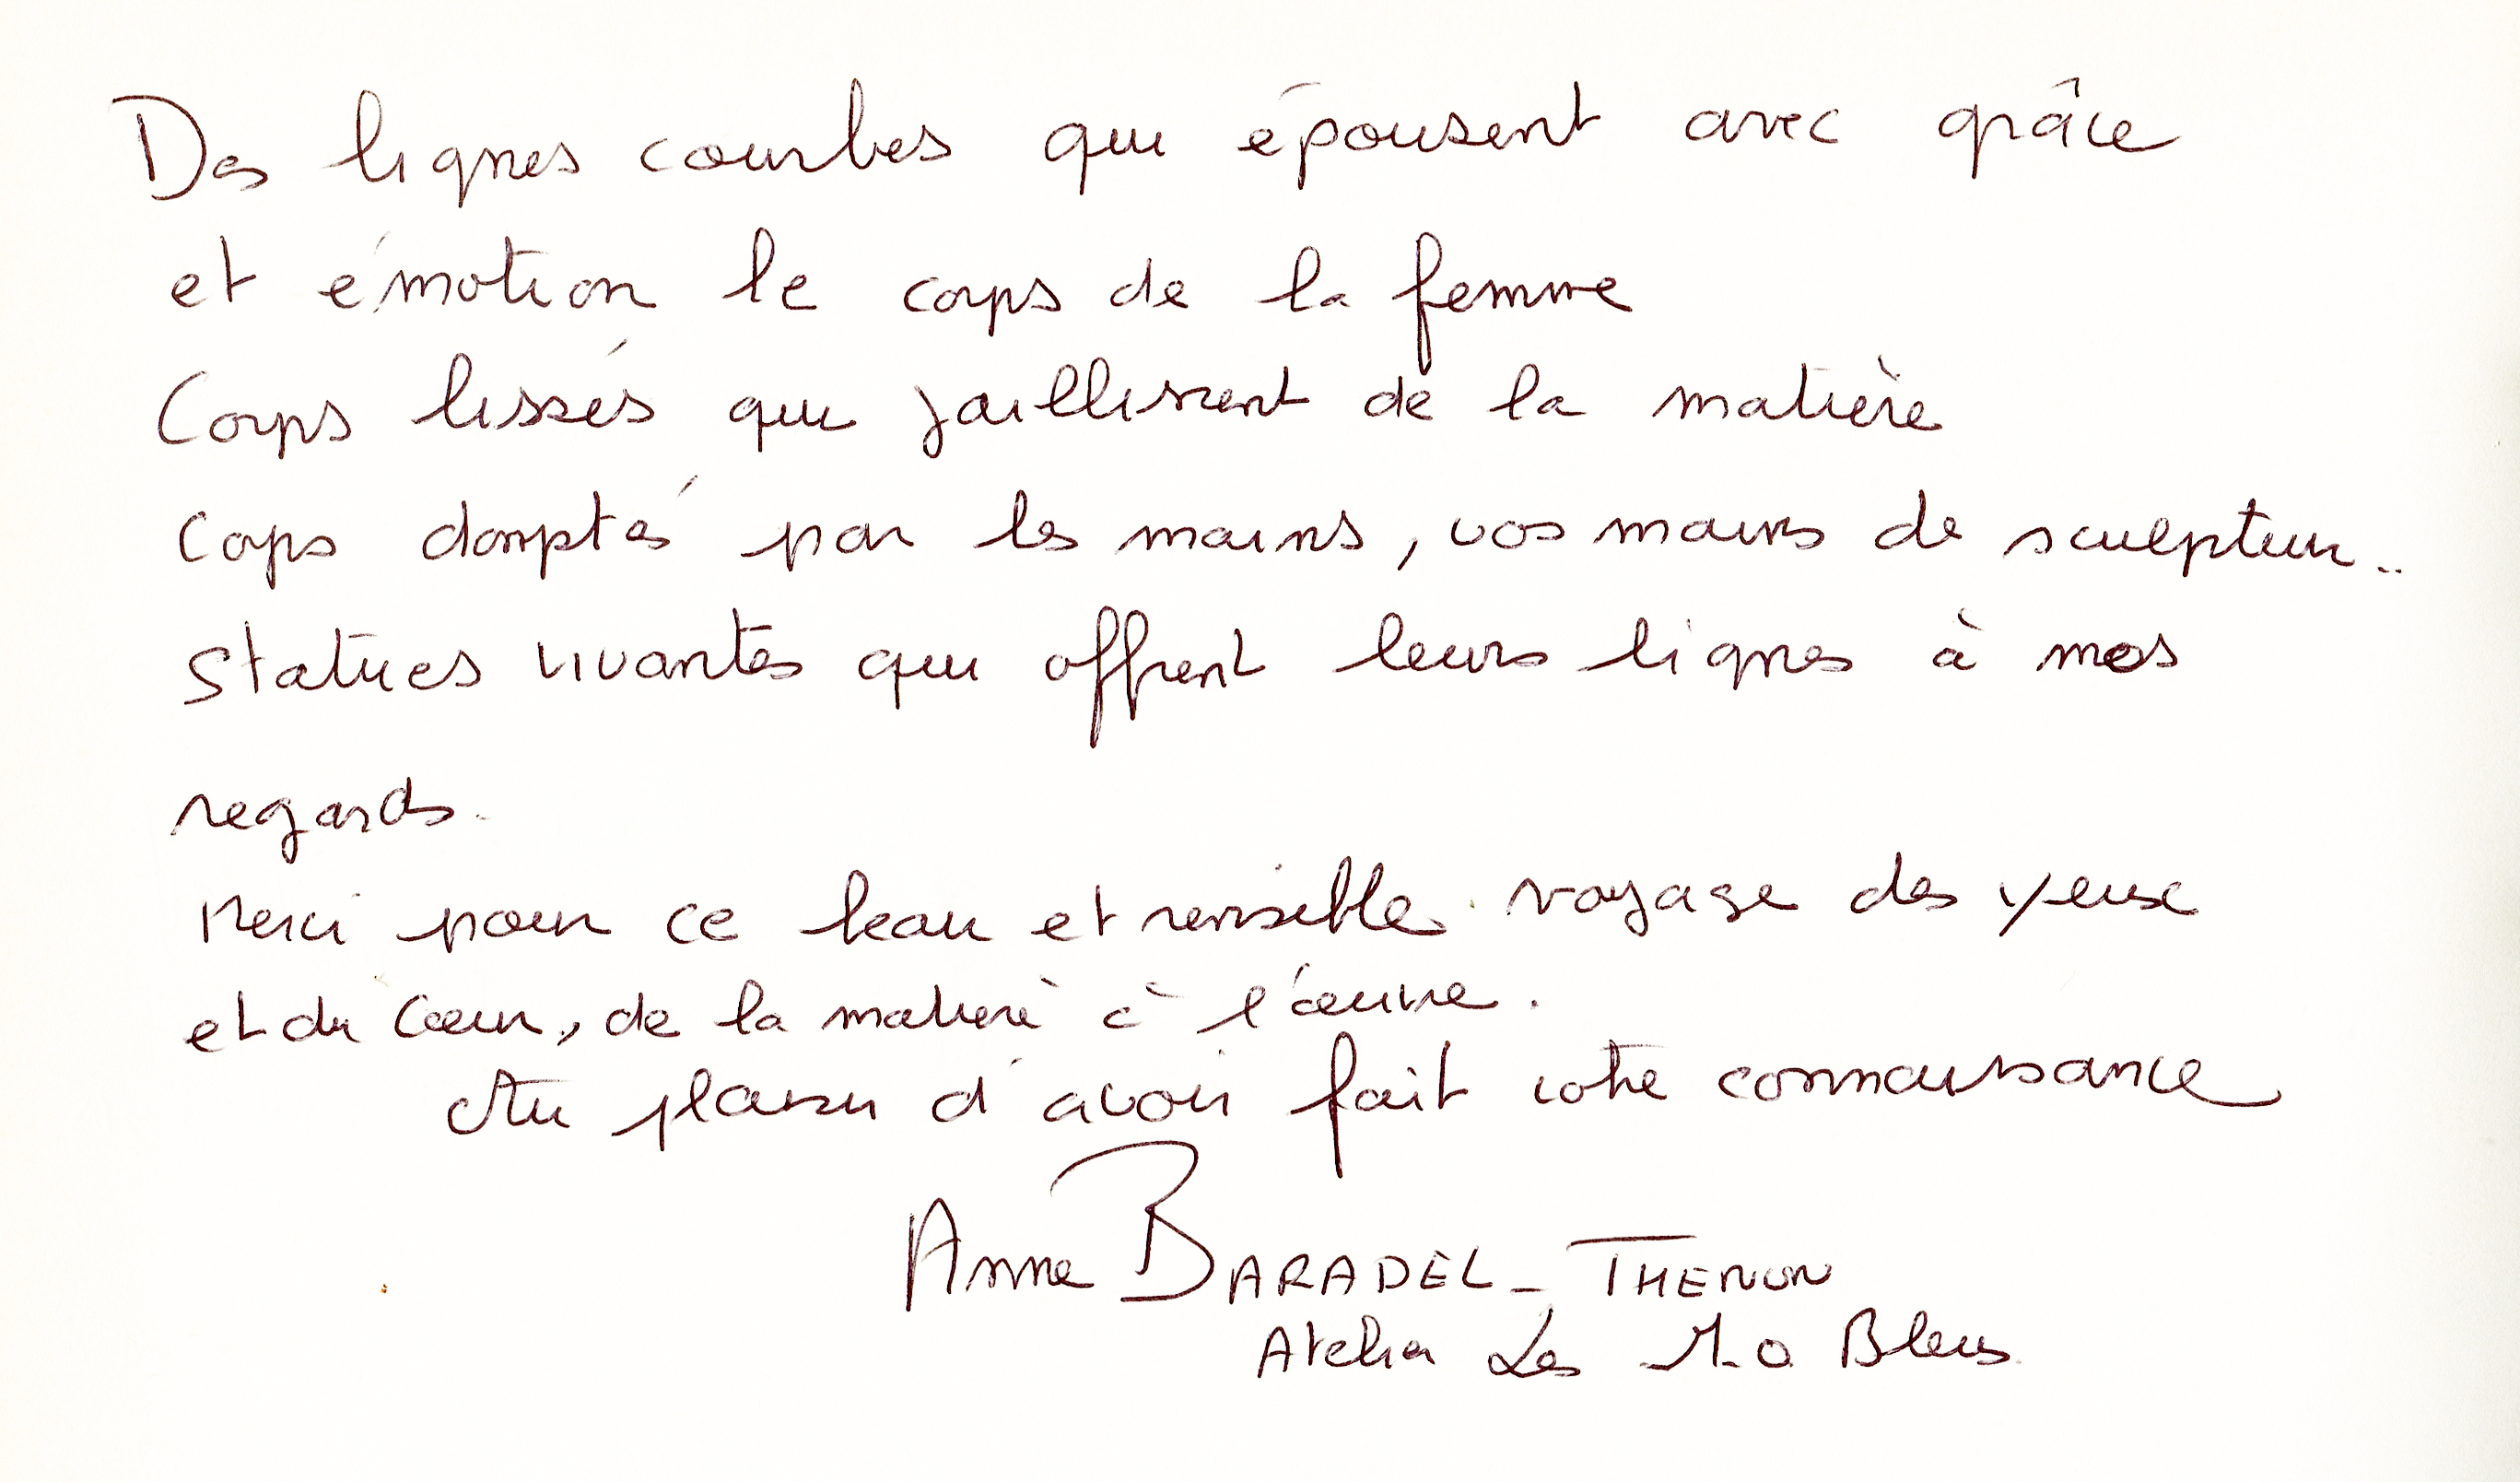 Des lignes courbes qui épousent avec grâce
et émotion le corps de la femme
Corps lissés qui jaillissent de la matière
Corps domptés par les mains, vos mains de sculpteur..
Statues vivantes qui offrent leurs lignes à mes
regards.
Merci pour ce beau et sensible voyage des yeux
et du Cœur, de la matière à l'œuvre.
Au plaisir d'avoir fait votre connaissance
Anne BARADEL_THENON
Atelier Les Bleus